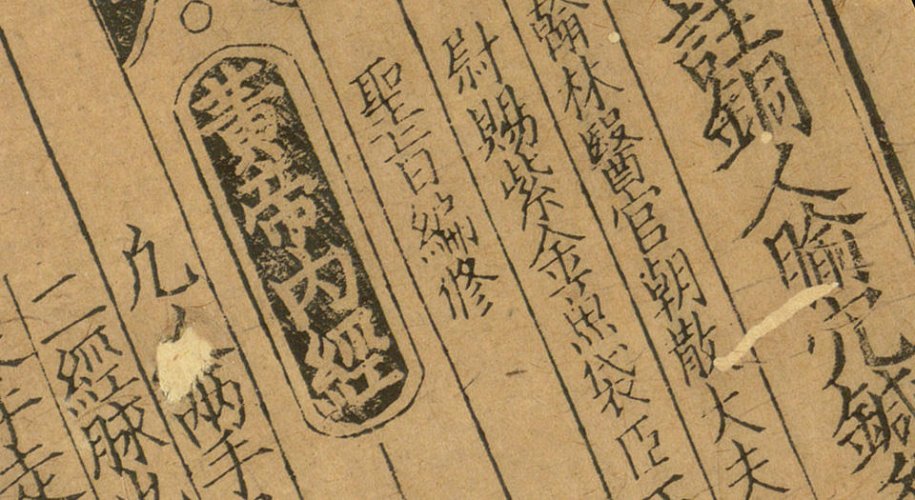 註銅人腧穴鍼
翰林醫官朝散大夫
尉賜紫金魚袋臣
聖旨編修
黃帝內經
凡 兩手
二經脉
手走